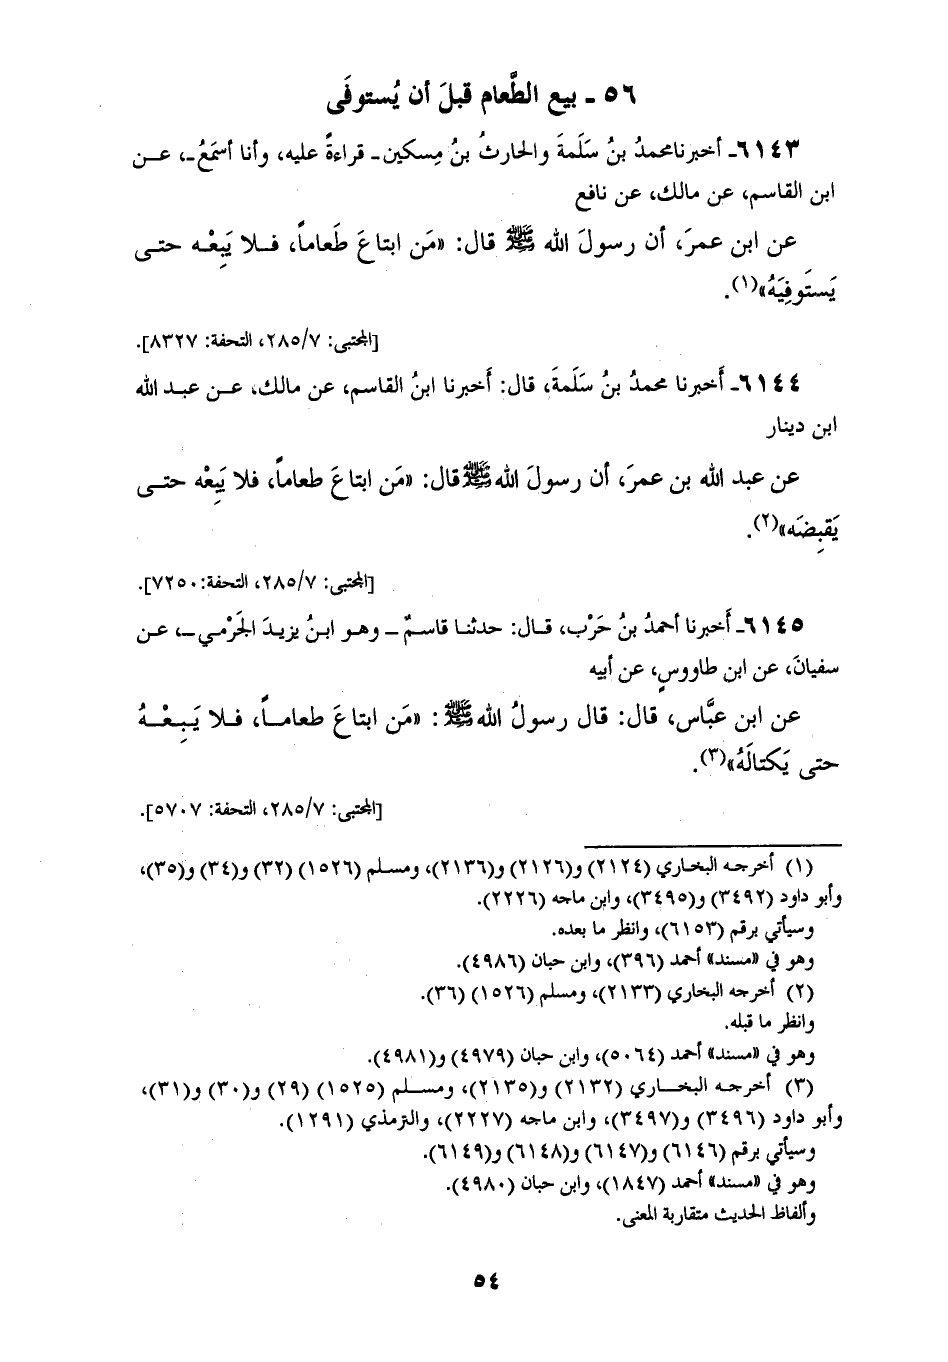 ٥٦ ـ بيع الطَّعام قبلَ أن يُستوفَى
٦١٤٣ـ أخبرنا محمدُ بنُ سَلَمةَ والحارثُ بنُ مِسكين ـ قراءةً عليه، وأنا أسمَعُ ـ، عـن
ابن القاسم، عن مالك، عن نافع
عن ابن عمرَ، أن رسولَ الله ﷺ قال: «مَن ابتاعَ طَعاماً، فـلا يَبِعْـه حتـى
يَستَوفِيَهُ»(١).
[المجتبى: ٢٨٥/٧، التحفة: ٨٣٢٧].
٦١٤٤ـ أَخبرنا محمدُ بنُ سَلَمةَ، قال: أَخبرنا ابنُ القاسم، عن مالك، عـن عبـد الله
ابن دينار
عن عبد الله بن عمرَ، أن رسولَ الله ﷺ قال: «مَن ابتاعَ طعاماً، فلا يَبِعْه حتـى
يَقبِضَه»(٢).
[المجتبى: ٢٨٥/٧، التحفة: ٧٢٥٠].
٦١٤٥ـ أَخبرنا أحمدُ بنُ حَرْب، قـال: حدثنـا قاسـمٌ ـ وهـو ابـنُ يزيـدَ الجَرْمـي ـ، عـن
سفيانَ، عن ابن طاووسٍ، عن أبيه
عن ابن عبَّاس، قال: قال رسولُ الله ﷺ: «مَن ابتاعَ طعامـاً، فـلا يَـبِـعْـهُ
حتى يَكتالَهُ»(٣).
[المجتبى: ٢٨٥/٧، التحفة: ٥٧٠٧].
(١) أخرجـه البخاري (٢١٢٤) و(٢١٢٦) و(٢١٣٦)، ومسلم (١٥٢٦) (٣٢) و(٣٤) و(٣٥)،
وأبو داود (٣٤٩٢) و(٣٤٩٥)، وابن ماجه (٢٢٢٦).
وسيأتي برقم (٦١٥٣)، وانظر ما بعده.
وهو في «مسند» أحمد (٣٩٦)، وابن حبان (٤٩٨٦).
(٢) أخرجه البخاري (٢١٣٣)، ومسلم (١٥٢٦) (٣٦).
وانظر ما قبله.
وهو في «مسند» أحمد (٥٠٦٤)، وابن حبان (٤٩٧٩) و(٤٩٨١).
(٣) أخرجـه البخـاري (٢١٣٢) و(٢١٣٥)، ومسـلم (١٥٢٥) (٢٩) و(٣٠) و(٣١)،
وأبو داود (٣٤٩٦) و(٣٤٩٧)، وابن ماجه (٢٢٢٧)، والترمذي (١٢٩١).
وسيأتي برقم (٦١٤٦) و(٦١٤٧) و(٦١٤٨) و(٦١٤٩).
وهو في «مسند» أحمد (١٨٤٧)، وابن حبان (٤٩٨٠).
وألفاظ الحديث متقاربة المعنى.
٥٤